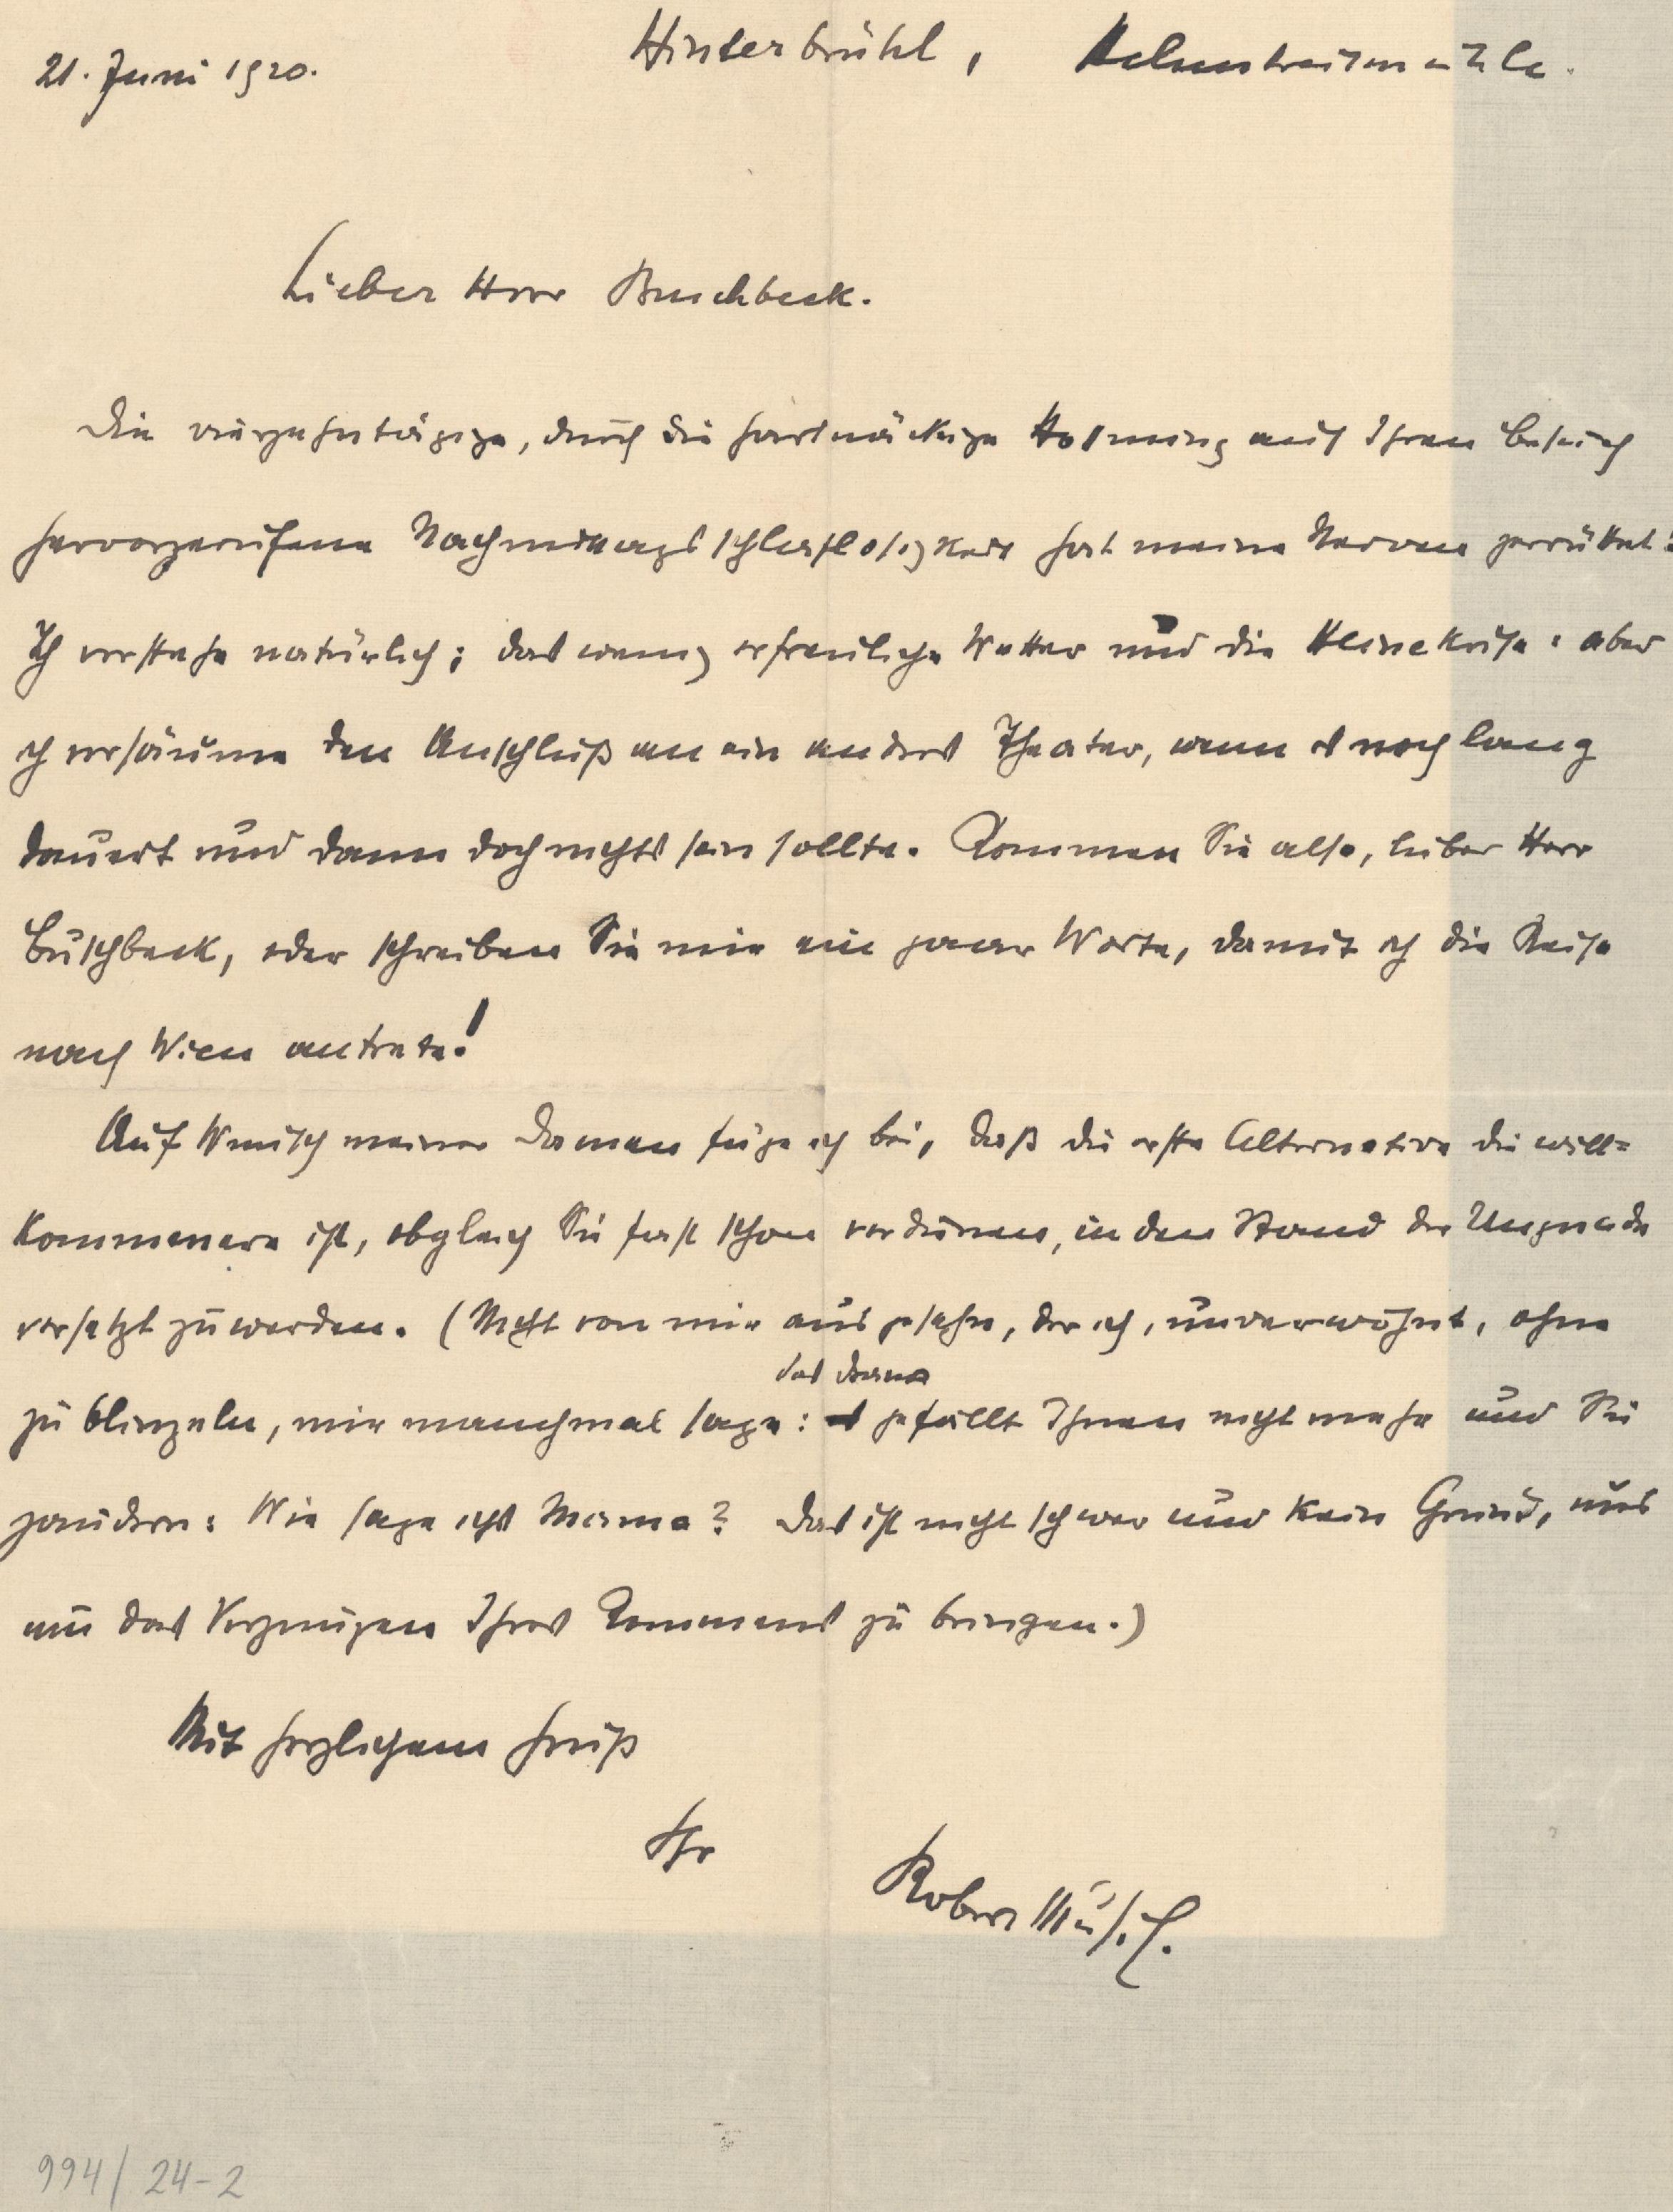 21. Juni 1920.
Hinterbrühl,
Lieber Herr Buschbeck.
Die vierzehntägige, durch die hartnäckige Hoffnung auf Ihren Besuch
hervorgerufene Nachmittagsschlaflosigkeit hat meine Nerven zerrüttet:
Ich verstehe natürlich; das wenig erfreuliche Wetter und die Heinekrise: aber
ich versäume den Anschluß an ein andres Theater, wenn es noch lang
dauert und dann doch nichts sein sollte. Kommen Sie also, lieber Herr
Buschbeck, oder schreiben Sie mir ein paar Worte, damit ich die Reise
nach Wien antrete!
Auf Wunsch meiner Damen füge ich bei, daß die erste Alternative die will-
kommenere ist, obgleich Sie fast schon verdienen, in den Stand der Ungnade
versetzt zu werden. (Nicht von mir aus gesehn, der ich, unverwöhnt, ohne
das Drama
zu blinzeln, mir manchmal sage: gefällt Ihnen nicht mehr und Sie
zaudern: Wie sage ichs Mama? Das ist nicht schwer und kein Grund, uns
um das Vergnügen Ihres Kommens zu bringen.)
Mit herzlichem Gruß
Ihr
Robert Musil.
994/24-2